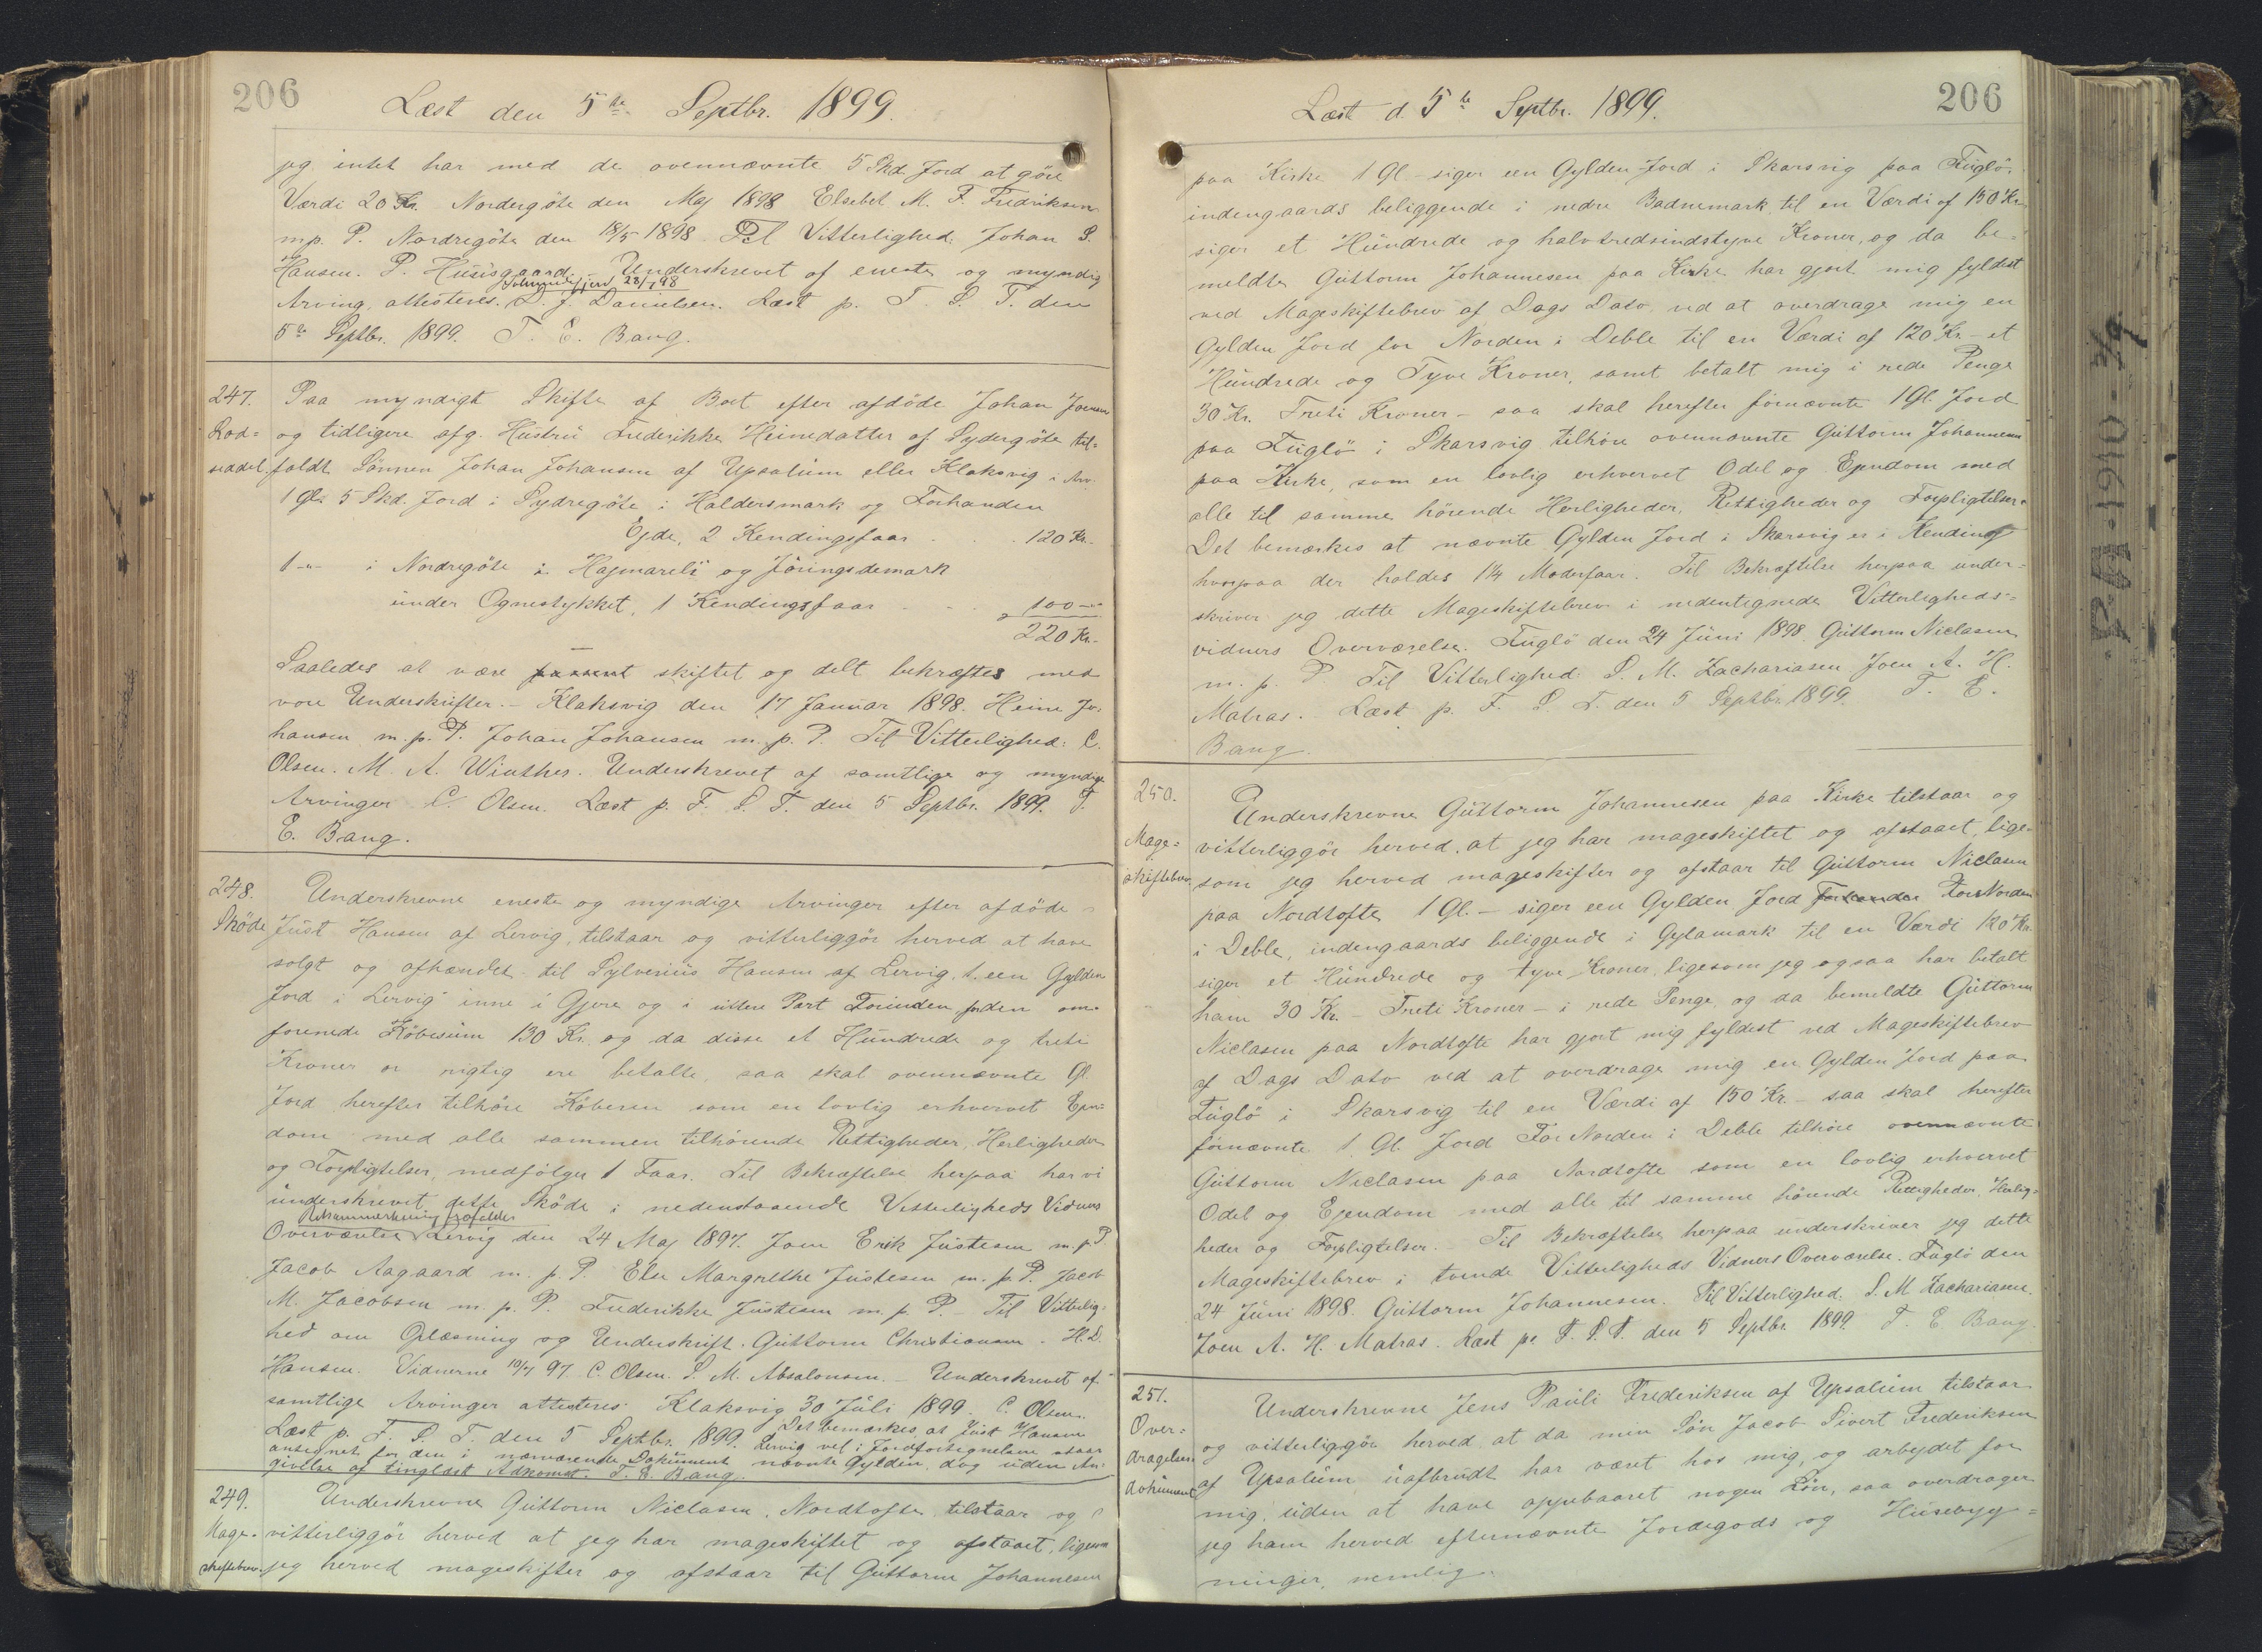 206
Læst den 5te Septbr. 1899.
jeg intet har med de ovennævnte 5 Skd. Jord at göre
Værdi 20 Kr. Nordregöte den Maj 1898 Elsebet M. F. Fredriksen
mp. P. Nordregöte den 18/5 1898. Til Vitterlighed: Johan P.
Hansen. P. Husisgaard. Underskrevet af eneste og myndig
28/7 98
Arving, attesteres. D. J. Danielsen. Læst p. F. S. T. den
5te Septbr. 1899. T. E. Bang.
247. Paa myndigt Skifte af Boet efter afdöde Johan Joensen
Lod= og tidligere afg. Hustru Frederikke Heinedatter af Sydergöte til=
seddel. faldt Sönnen Johan Johansen af Upsalum eller Klaksvig i Arv.
1 Gl. 5 Skd. Jord i Sydregöte i Haldersmark og Forhanden
Ejde, 2 Kendingsfaar . . . 120 Kr.
1 -"- i Nordregöte i Hagmareli og Jöringsdemark
under Ognestykket, 1 Kendingsfaar . . . 100 -"-
220 Kr.
Saaledes at være passeret skiftet og delt bekræftes med
vore Underskrifter. - Klaksvig den 17 Januar 1898. Heine Jo=
hansen m. p. P. Johan Johansen m. p. P. Til Vitterlighed: C.
Olsen. M. A. Winther. Underskrevet af samtlige og myndige
Arvinger C. Olsen. Læst p. F. S. T. den 5 Septbr. 1899. T.
E. Bang.
248. Underskrevne eneste og myndige Arvinger efter afdöde
Sköde Just Hansen af Lervig, tilstaar og vitterliggör herved at have
solgt og afhændet til Sylverius Hansen af Lervig, 1. een Gylden
Jord i Lervig inne i Gjere og i uttere Part Forinden for den om=
forenede Köbesum 130 Kr. og da disse et Hundrede og treti
Kroner er rigtig ere betalte, saa skal ovennævnte Gl.
Jord herefter tilhöre Köberen som en lovlig erhvervet Ejen=
dom med alle sammen tilhörende Rettigheder, Herligheder
og Forpligtelser, medfölger 1 Faar. Til Bekræftelse herpaa har vi
underskrevet dette Sköde i nedenstaaende Vitterligheds Vidners
Overværelse Lervig den 24 Maj 1897. Joen Erik Justesen m. p. P
Jacob Aagaard m. p. P. Else Margrethe Justesen m. p. P. Jacob
M. Jacobsen m. p. P. Frederikke Justesen m. p. P - Til Vitterlig=
hed om Oplæsning og Underskrift. Guttorm Christiansen. H. D.
Hansen. Vidnerne 10/7 97 C. Olsen. S. M. Absalonsen. - Underskrevet af
samtlige Arvinger attesteres. Klaksvig 30 Juli 1899. C. Olsen.
Læst p. F. S. T. den 5 Septbr. 1899. Det bemærkes, at Just Hansen
Lervig vel i Jordfortegnelsen staar
antegnet for den i nærværende Dokument nævnte Gylden, dog uden An=
givelse af tinglæst Adkomst. T. E. Bang.
249. Underskrevne Guttorm Niclasen, Nordtofte, tilstaar og
Mage= vitterliggör herved at jeg har mageskiftet og afstaaet, ligesom
skiftebrev. jeg herved mageskifter og afstaar til Guttorm Johannesen
206
Læst d. 5te Septbr. 1899.
paa Kirke 1 Gl. - siger een Gylden Jord i Skarsvig paa Fuglö,
indengaards beliggende i nedre Badnemark, til en Værdi af 150 Kr.
siger et Hundrede og halvtredsindstyve Kroner, og da be=
meldte Guttorm Johannesen paa Kirke har gjort mig fyldest
ved Mageskiftebrev af Dags Dato ved at overdrage mig en
Gylden Jord for Norden i Deble til en Værdi af 120 Kr. - et
Hundrede og Tyve Kroner, samt betalt mig i rede Penge
30 Kr. Treti Kroner - saa skal herefter fornævnte 1 Gl. Jord
paa Fuglö i Skarsvig tilhöre ovennævnte Guttorm Johannesen
paa Kirke, som en lovlig erhvervet Odel og Ejendom med
alle til samme hörende Herligheder, Rettigheder og Forpligtelser.
Det bemærkes at nævnte Gylden Jord i Skarsvig er i Kending
hvorpaa der holdes 1 1/4 Moderfaar. Til Bekræftelse herpaa under=
skriver jeg dette Mageskiftebrev i nedentegnede Vitterligheds=
vidners Overværelse. Fuglö den 24 Juni 1898. Guttorm Niclasen
m. p. P Til Vitterlighed: S. M. Zachariasen Joen A. H.
Matras. Læst p. F. S. T. den 5 Septbr. 1899. T. E.
Bang.
250. Underskrevne Guttorm Johannesen paa Kirke tilstaar og
Mage= vitterliggör herved, at jeg har mageskiftet og afstaaet, lige=
skiftebrev som jeg herved mageskifter og afstaar til Guttorm Niclasen
paa Nordtofte 1 Gl. - siger een Gylden Jord For Norden
i Deble, indengaards beliggende i Gylamark til en Værdi 120 Kr.
siger et Hundrede og tyve Kroner, ligesom jeg ogsaa har betalt
ham 30 Kr. - Treti Kroner - i rede Penge, og da bemeldte Guttorm
Niclasen paa Nordtofte har gjort mig fyldest ved Mageskiftebrev
af Dags Dato ved at overdrage mig en Gylden Jord paa
Fuglö i Skarsvig til en Værdi af 150 Kr. - saa skal herefter
fornævnte 1 Gl. Jord For Norden i Deble tilhöre ovennævnte
Guttorm Niclasen paa Nordtofte som en lovlig erhvervet
Odel og Ejendom med alle til samme hörende Rettigheder, Herlig=
heder og Forpligtelser. - Til Bekræftelse herpaa underskriver jeg dette
Mageskiftebrev i tvende Vitterligheds Vidners Overværelse. Fuglö den
24 Juni 1898. Guttorm Johannesen. Til Vitterlighed: S. M. Zachariasen.
Joen A. H. Matras. Læst p. F. S. T. den 5 Septbr. 1899. T. E. Bang.
251. Underskrevne Jens Pauli Frederiksen af Upsalum tilstaar
Over= og vitterliggör herved at da min Sön Jacob Sivert Frederiksen
dragelses= af Upsalum uafbrudt har været hos mig, og arbejdet for
dokument mig, uden at have oppebaaret nogen Lön, saa overdrager
jeg ham herved efternævnte Jordegods og Husebyg=
ninger, nemlig